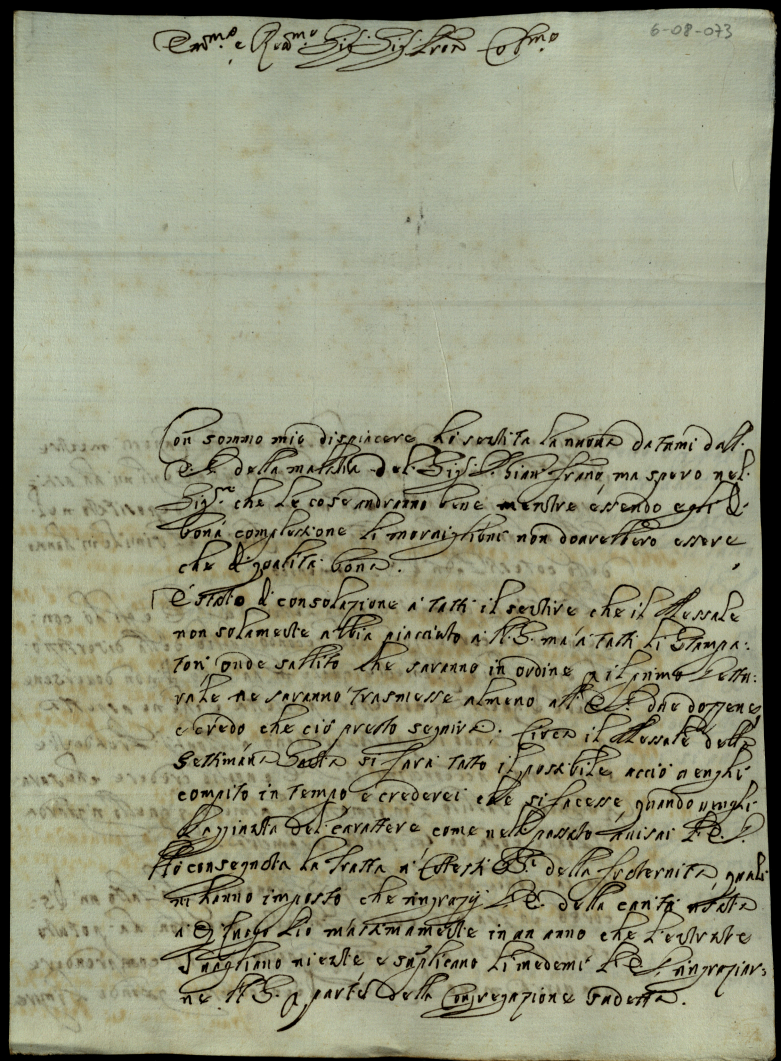 6-08-073
Em.mo e R.mo Sig.r Sig.r Pron Col.mo
Con sommo mio dispiacere hò sentita la nuova datami dall'
E. S. della malatia del Sig.r D. Gian Franc.o, ma spero nel
Sig.re che le cose andranno bene mentre essendo egli di
bona complessione li moraiglioni non dovrebbero essere
che di qualità bona.
È stato di consolazione à tutti il sentire che il Messale
non solamente abbia piacciuto à N. S. ma à tutti li Stampa:
tori onde subbito che saranno in ordine p il primo Vettu:
rale ne saranno trasmesse almeno all' E. S. due dozzene,
e credo che ciò presto seguirà. Circa il Messale della
Settimana Santa si farà tutto il possibile acciò venghi
compito in tempo e crederei che si facesse, quando venghi
l'aggiunta del carattere come nelle passate avisai V. E.
Hò consegnata la Tratta à cotesti SS.ri della fraternita, quali
mi hanno imposto che ringrazij V. E. della carità usata
à D. luogo Pio massimamente in un anno che l'entrate
Suagliano niente e suplicano li medemi V. E. ringraziar:
ne N. S. p parte della Congregazione sudetta.